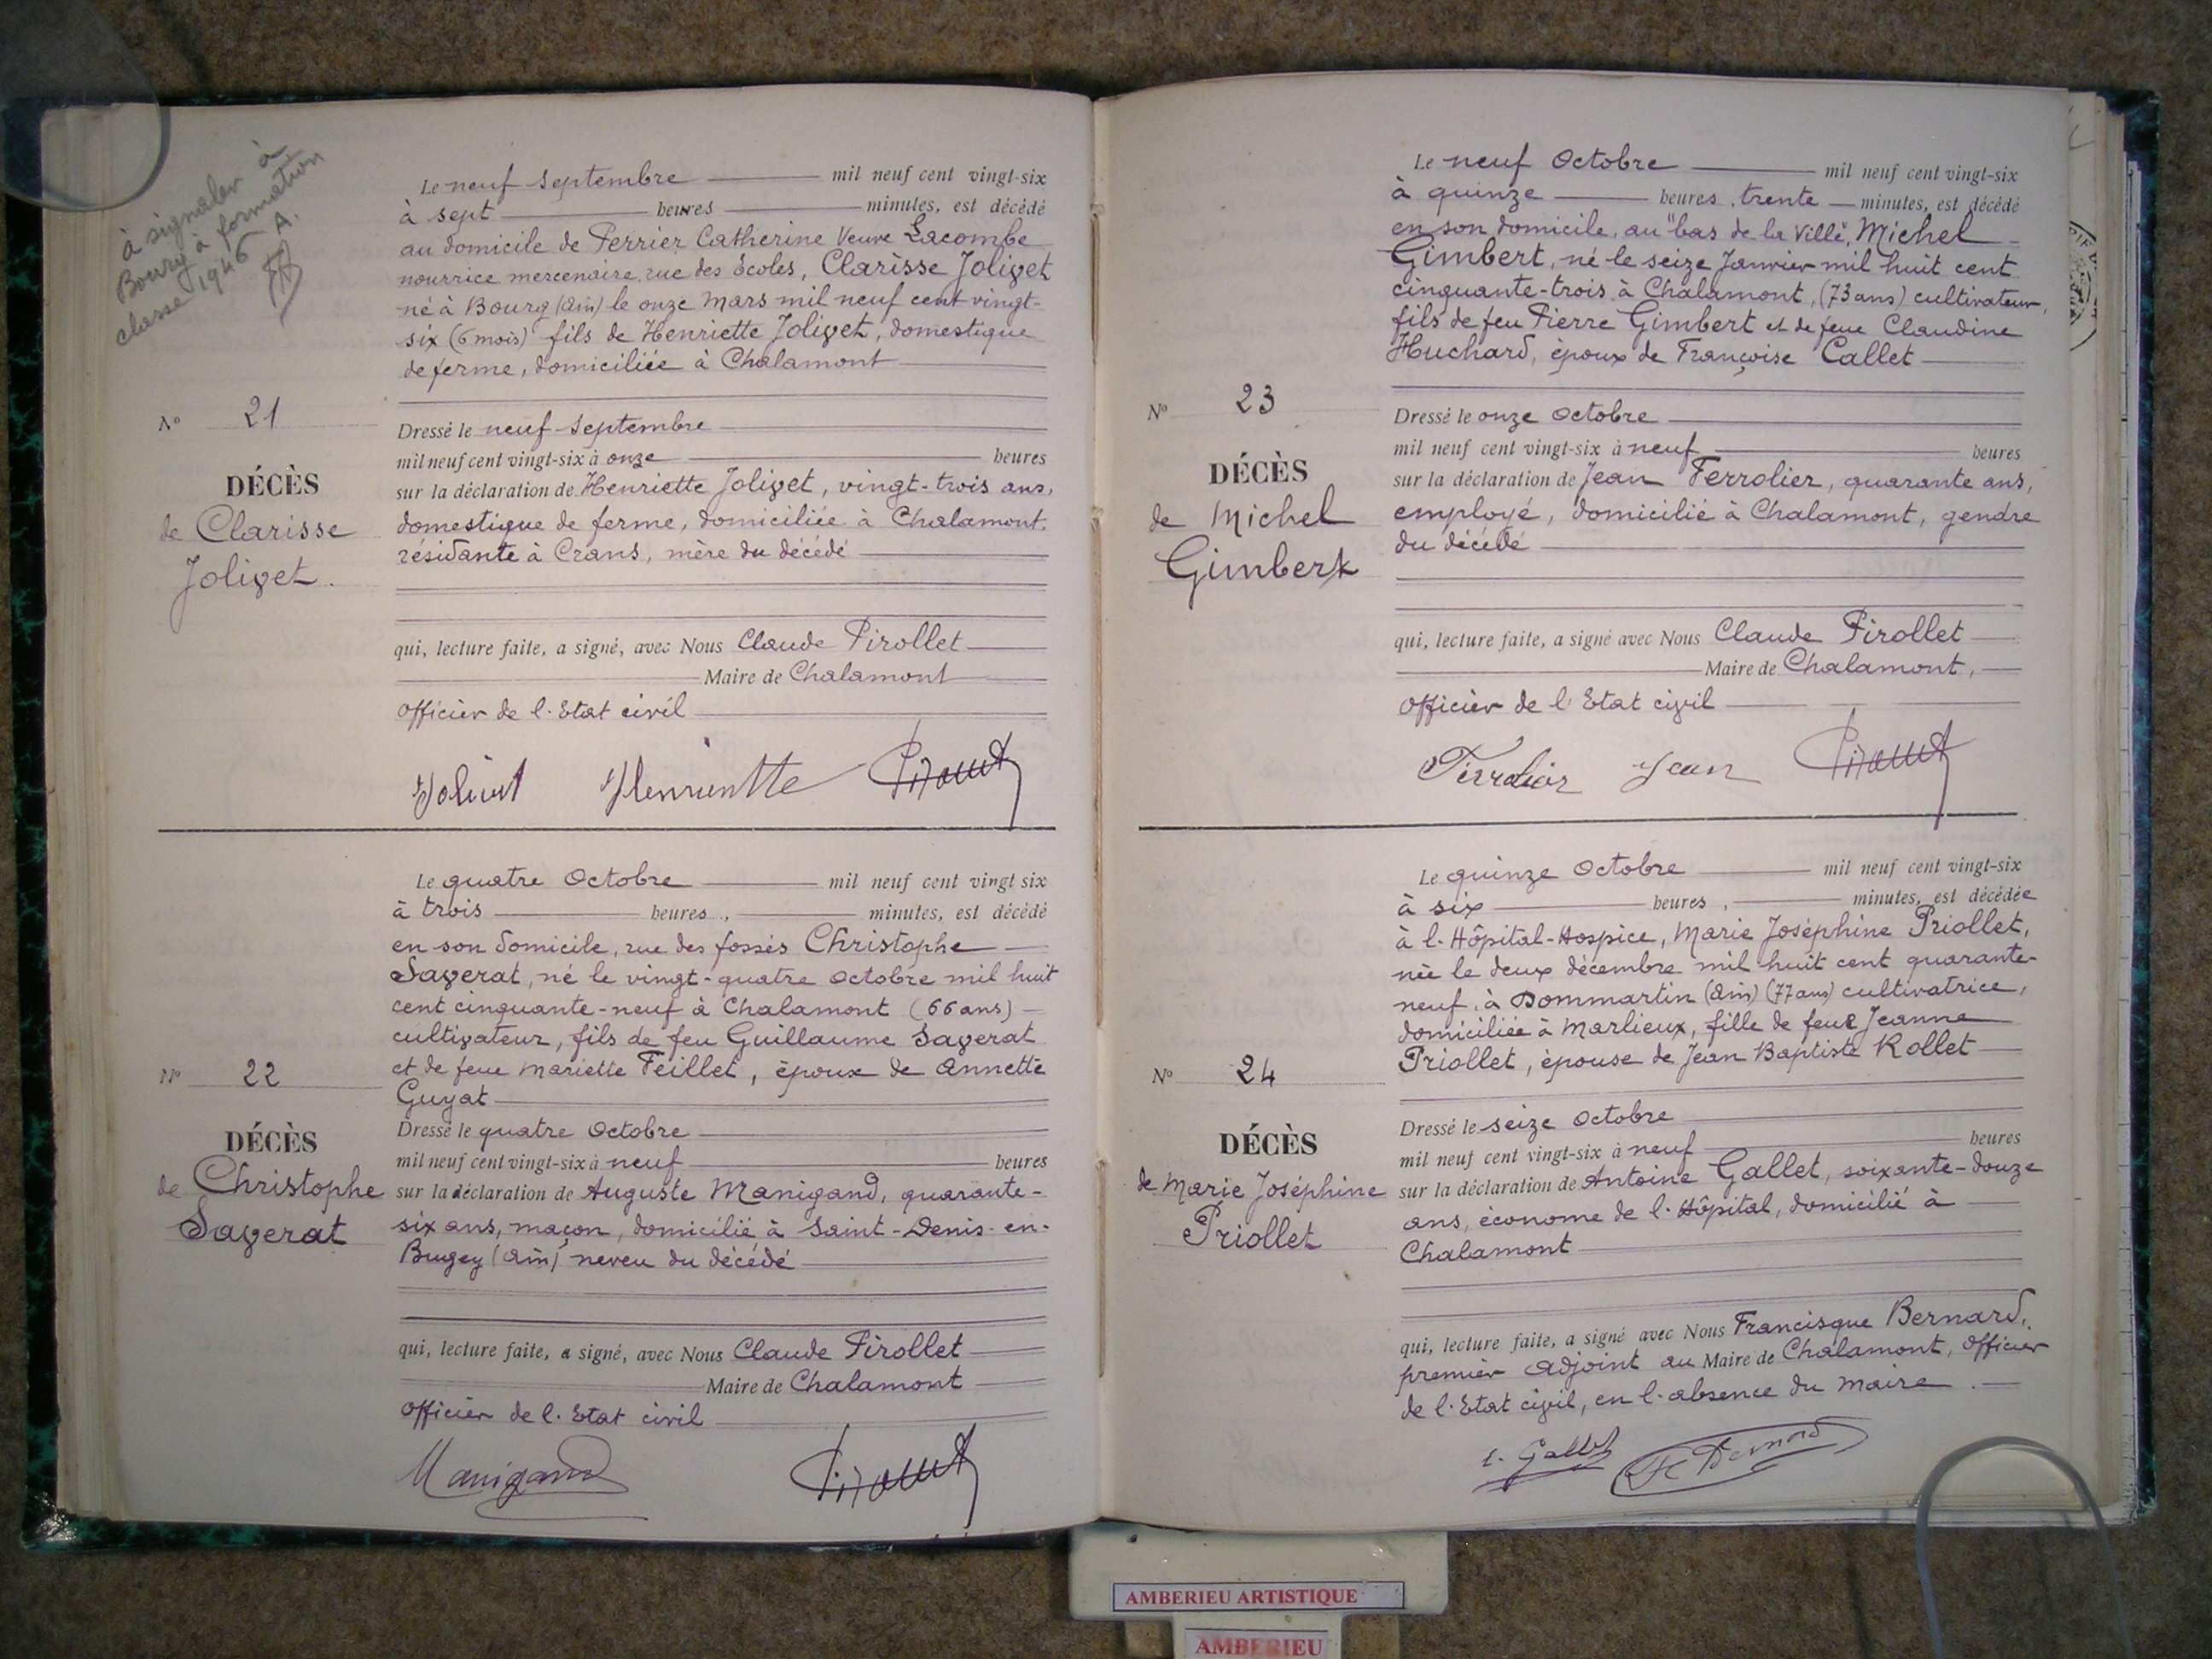 à signaler à
Bourg à formation
classe 1946 A.
Le neuf Septembre mil neuf cent vingt-six
à sept heures minutes, est décédé
au domicile de Perrier Catherine Veuve Lacombe
nourrice mercenaire rue des Écoles, Clarisse Jolivet
né à Bourg (Ain) le onze Mars mil neuf cent vingt-
six (6 mois) fils de Henriette Jolivet, domestique
de ferme, domiciliée à Chalamont
No 21
DÉCÈS
de Clarisse
Jolivet.
Dressé le neuf Septembre
mil neuf cent vingt-six à onze heures
sur la déclaration de Henriette Jolivet, vingt-trois ans,
domestique de ferme, domiciliée à Chalamont,
résidante à Crans, mère du décédé
qui, lecture faite, a signé, avec Nous Claude Pirollet
Maire de Chalamont
Officier de l'Etat civil
Jolivet Henriette Pirollet
Le quatre Octobre mil neuf cent vingt six
à trois heures, minutes, est décédé
en son domicile, rue des fossés Christophe
Saverat, né le vingt-quatre Octobre mil huit
cent cinquante-neuf à Chalamont (66 ans)
cultivateur, fils de feu Guillaume Saverat
et de feue Mariette Feillet, époux de Annette
Guyat
No 22
DÉCÈS
de Christophe
Saverat
Dressé le quatre Octobre
mil neuf cent vingt-six à neuf heures
sur la déclaration de Auguste Manigand, quarante-
six ans, maçon, domicilié à Saint-Denis-en-
Bugey (Ain) neveu du décédé
qui, lecture faite, a signé, avec Nous Claude Pirollet
Maire de Chalamont
Officier de l'Etat civil
Manigand Pirollet
Le neuf Octobre mil neuf cent vingt-six
à quinze heures, trente minutes, est décédé
en son domicile, au "bas de la Ville", Michel
Gimbert, né le seize Janvier mil huit cent
cinquante-trois à Chalamont, (73 ans) cultivateur,
fils de feu Pierre Gimbert et de feue Claudine
Huchard, époux de Françoise Callet
No 23
DÉCÈS
de Michel
Gimbert
Dressé le onze Octobre
mil neuf cent vingt-six à neuf heures
sur la déclaration de Jean Ferrolier, quarante ans,
employé, domicilié à Chalamont, gendre
du décédé
qui, lecture faite, a signé avec Nous Claude Pirollet
Maire de Chalamont,
Officier de l'Etat civil
Ferrolier Jean Pirollet
Le quinze Octobre mil neuf cent vingt-six
à six heures, minutes, est décédée
à l'Hôpital-Hospice, Marie Joséphine Priollet,
née le deux décembre mil huit cent quarante-
neuf, à Dommartin (Ain) (77 ans) cultivatrice,
domiciliée à Marlieux, fille de feue Jeanne
Priollet, épouse de Jean Baptiste Rollet
No 24
DÉCÈS
de Marie Joséphine
Priollet
Dressé le seize Octobre
mil neuf cent vingt-six à neuf heures
sur la déclaration de Antoine Gallet, soixante-douze
ans, économe de l'Hôpital, domicilié à
Chalamont
qui, lecture faite, a signé avec Nous Francisque Bernard,
premier adjoint au Maire de Chalamont, Officier
de l'Etat civil, en l'absence du Maire.
Gallet Fc Bernard
AMBERIEU ARTISTIQUE
AMBERIEU